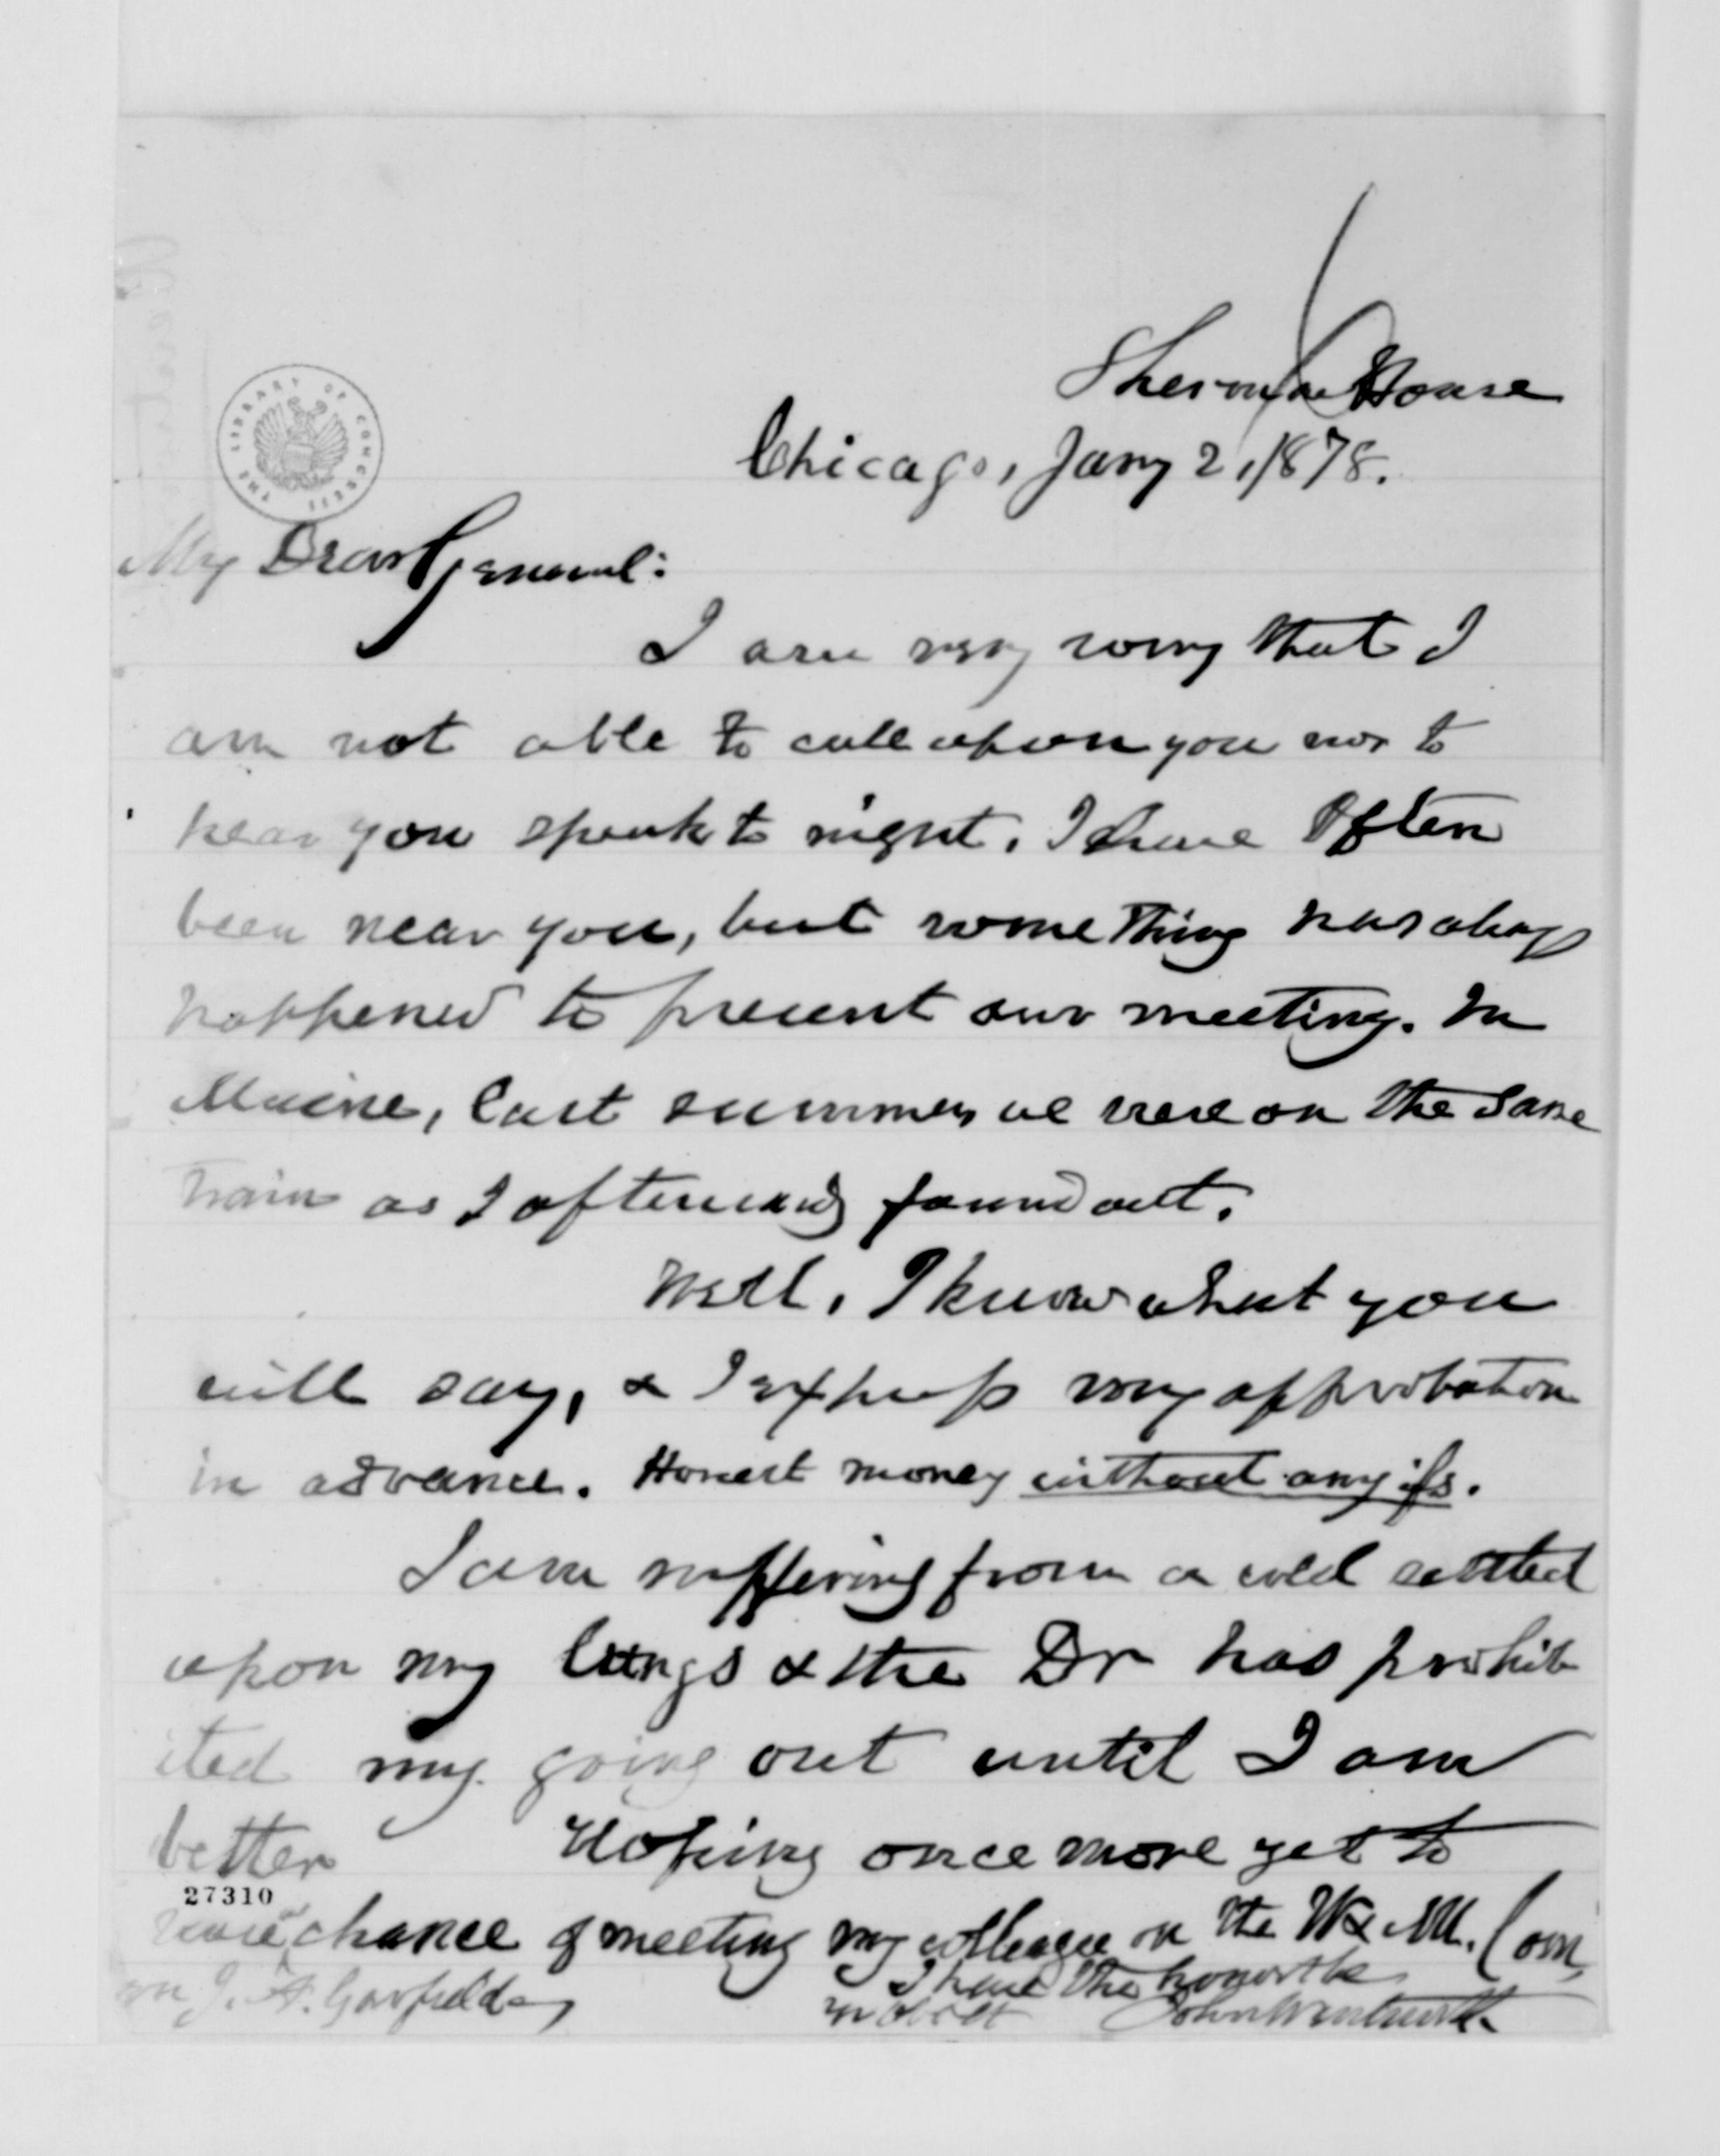 Sherman House
Chicago, Jany 2, 1878.
THE LIBRARY OF CONGRESS
My Dear General:
I am very sorry that I
am not able to call upon you nor to
hear you speak to night. I have often
been near you, but something has always
happened to prevent our meeting. In
Maine, last summer we were on the same
train as I afterwards found out.
Well, I know what you
will say, & I express my approbation
in advance. Honest money without any ifs.
I am suffering from a cold settled
upon my lungs & the Dr has prohib
ited my going out until I am
better Hoping once more yet to
27310
have a chance of meeting my colleague on the W & M. Com,
I have the honor to be
J. A. Garfield
yr obdt John Wentworth